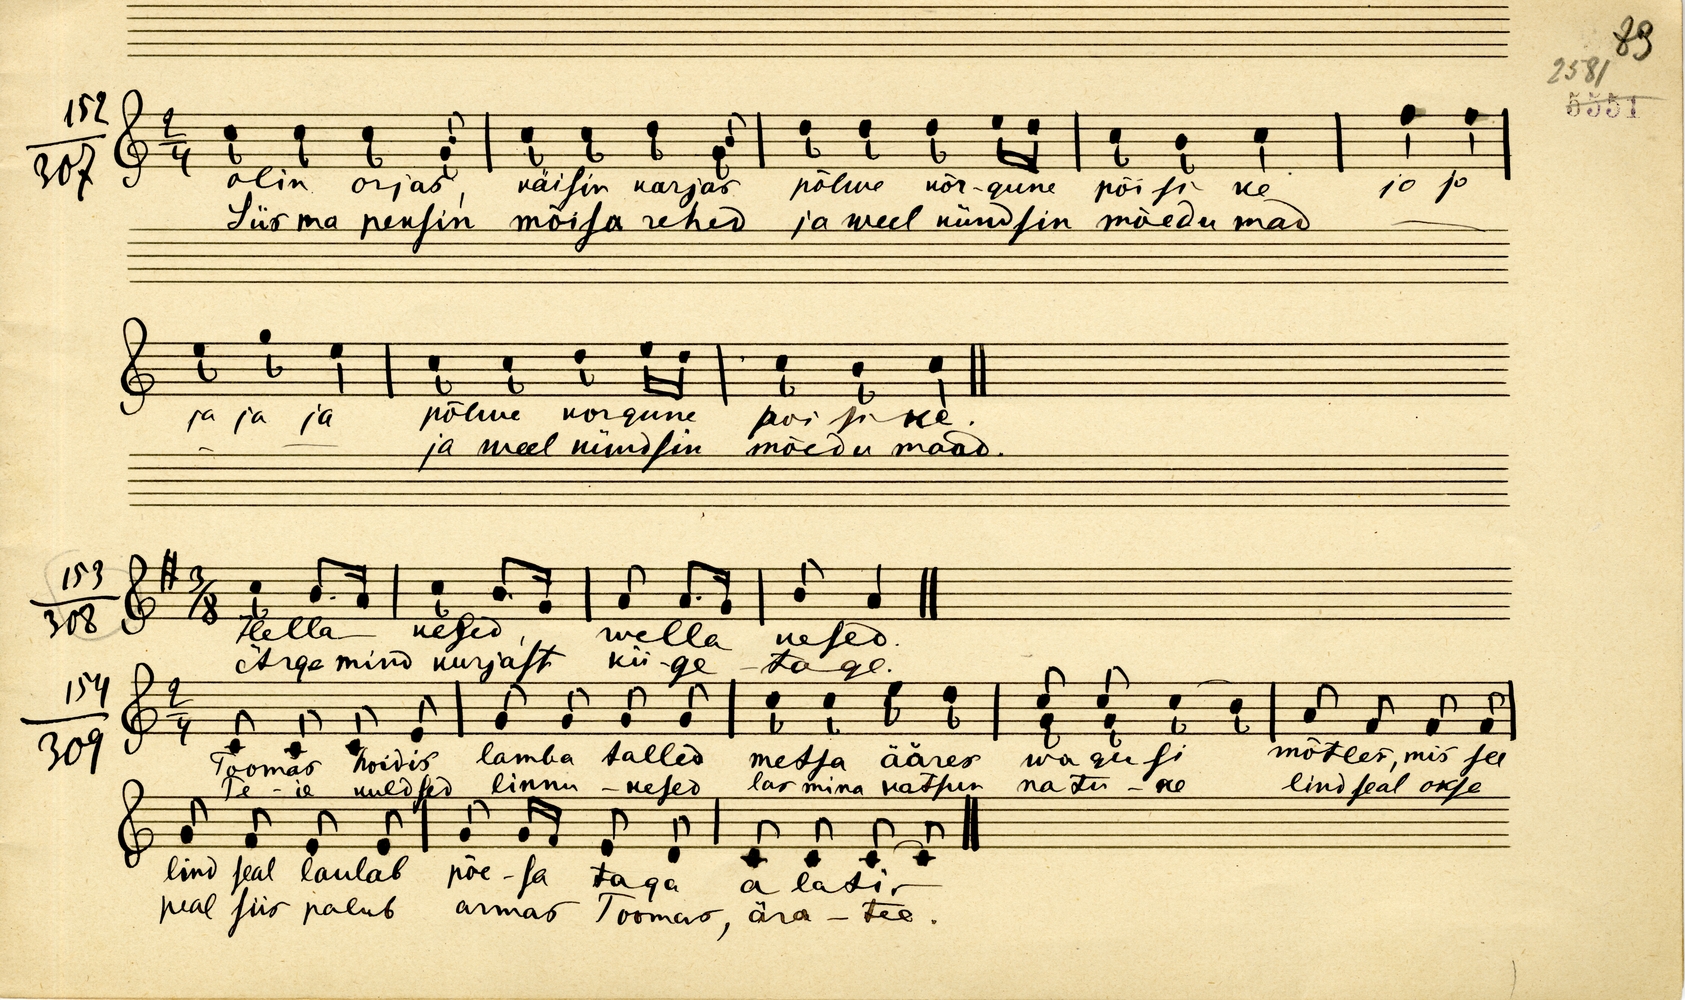 89
2581
5551
152
307
2/4
olin orjas, käisin karjas põlwe kõr-gune põi si ke jo jo
Siis ma peksin mõisa rehed ja weel kündsin mõedu mad
ja ja ja põlwe korgune poi si ke.
ja weel kündsin mõedu maad.
153
308
3/8
Hella kesed, wella kesed.
Ärge mind kurjast kii-ge-ta ge.
154
309
2/4
Toomas hoidis lamba talled metsa ääres wa gu si mõtles, mis see
Te-ie kuldsed linnu-kesed las mina katsun na tu-ke lind seal okse
lind seal laulab põe-sa taga a lati
peal siis palub armas Toomas, ära-tee.